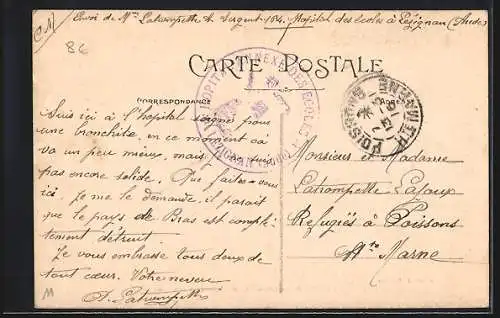 C M
Envoi de Mr Latrompette A. Sergent 154e Hopital des écoles à Lézignan (Aude)
8€
CARTE POSTALE
CORRESPONDANCE
HOPITAL ANNEXE DES ECOLES
LEZIGNAN (Aude)
POISSONS
HTE MARNE
Suis ici à l'hopital soigné pour
une bronchite, en ce moment ça
va un peu mieux, mais
pas encore solide. Que faites-vous
ici. Je me le demande, il parait
que le pays de Bras est complè-
tement détruit.
Je vous embrasse tous deux de
tout cœur. Votre neveu
A. Latrompette
Monsieur et Madame
Latrompette Lajoux
Refugiés à Poissons
Hte Marne
M